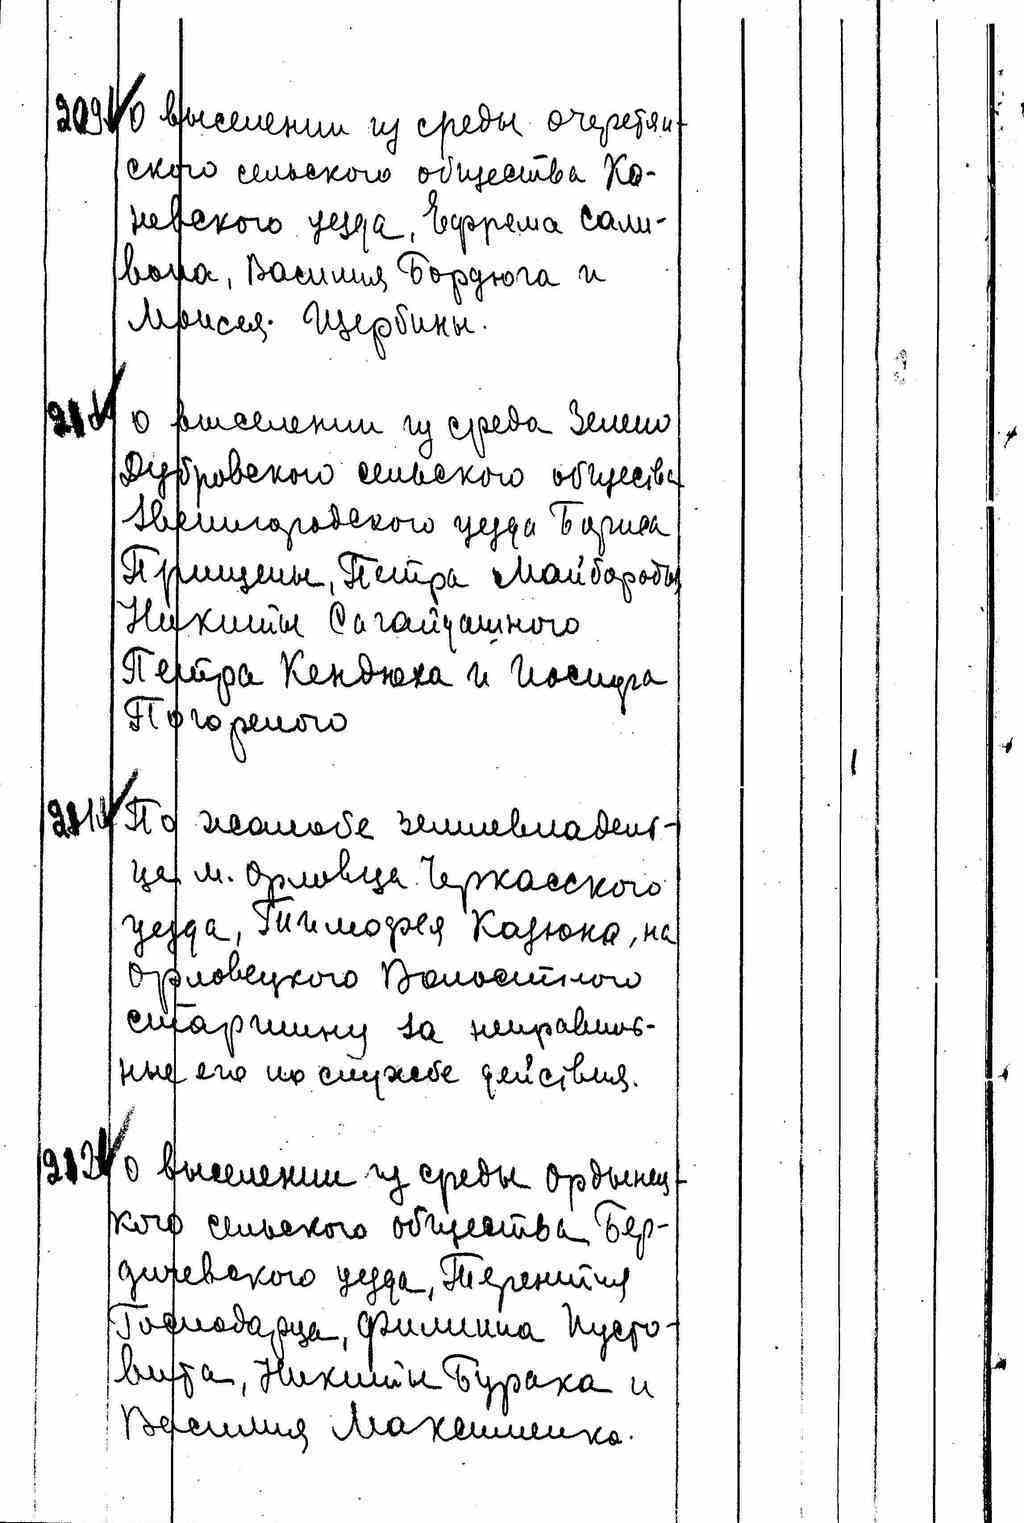 209 О выселении из среды очеретян-
ского сельского общества Ка-
невского уезда, Ефрема Сали-
вона, Василия Бордюга и
Моисея Щербины.
О выселении из среда Зелено
Дубровского сельского общества
Звенигородского уезда Бориса
Прищепы, Петра Майбороды
Никиты Сагайдашного
Петра Кендюха и Иосифа
Погорелого
211 По жалобе землевладель-
ца м. Орловца Черкасского
уезда, Тимофея Казюка, на
Орловецкого Волостного
старшину за неправиль-
ные его по службе действия.
212 О выселении из среды Ордынец-
кого сельского общества Бер-
дичевского уезда, Терентия
Господарца, Филиппа Пусто-
вита, Никиты Бурака и
Василия Максименка.